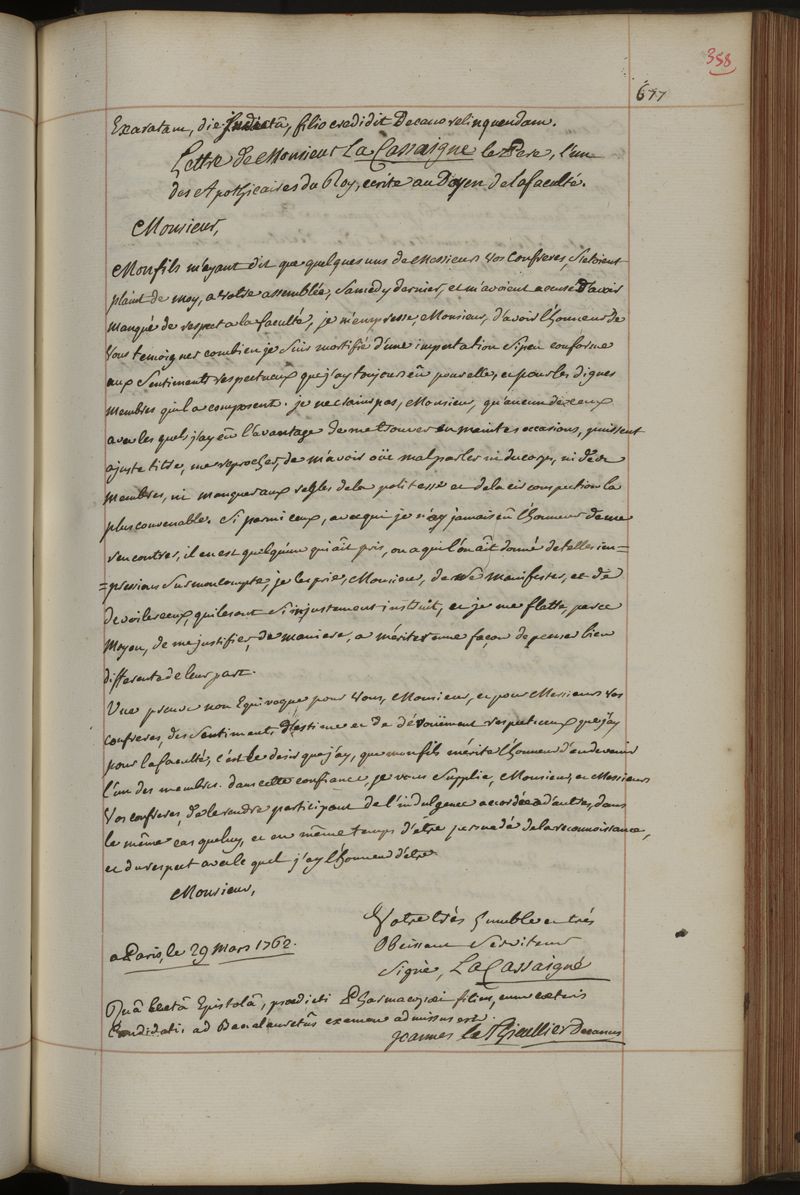 358
677
Exaratam, die Indictâ, filio credidit Decano relinquendam.
Lettre de Monsieur La Cassaigne le Pere, l'un
des Apothicaires du Roy, ecrite au Doyen de la faculté.
Monsieur,
Mon fils m'ayant dit que quelques uns de Messieurs vos Confreres, s'etoient
plaint de moy, a votre assemblée, Samedy dernier, et m'avoient accusé D'avoir
manqué de respect a la faculté, je m'empresse, Monsieur, d'avoir l'honneur de
vous temoigner combien je suis mortifié d'une imputation si peu conforme
aux sentiments respectueux que j'ay toujours eû pour elle, et pour les dignes
membres qui la composent. je ne crains pas, Monsieur, qu'aucun de ceux
avec les quels j'ay eû l'avantage de me trouver en maintes occasions, puissent
a juste titre, me reprocher, de m'avoir oüi mal parler ni du corps, ni de ses
membres, ni manquer aux regles de la politesse et de la circonspection la
plus convenable. Si parmi ceux, avec qui je n'ay jamais eû l'honneur de me
rencontrer, il en est quelqu'un qui aît pris, ou a qui l'on aît donné de telles im=
=pressions sur mon compte, je les prie, Monsieur, de se manifester, et de
devoiler ceux, qui les ont si injustement instruit, et je me flatte, par ce
moyen, de me justifier, de maniere, a mériter une façon de penser bien
differente de leur part.
Une preuve non Equivoque pour vous, Monsieur, et pour Messieurs vos
confreres, des sentiments d'estime et de dévoüement respectueux que j'ay
pour la faculté, c'est le desir que j'ay, que mon fils mérite l'honneur d'en devenir
l'un des membres. dans cette confiance je vous supplie, Monsieur, et Messieurs
vos confreres, de le rendre participant de l'indulgence accordée a d'autres, dans
le même cas que luy, et en même temps d'etre persuadé de la reconnoissance,
et du respect avec le quel j'ay l'honneur d'etre
Monsieur,
Votre trés humble et trés
Obeissant serviteur
a Paris, le 29 Mars 1762.
Signé, La Cassaigne
Quâ lectâ Epistolâ, prædicti Pharmacopæi filius, cum cæteris
Candidatis ad Baccalaureatûs examen admissus est.
Joannes le Thieullier Decanus